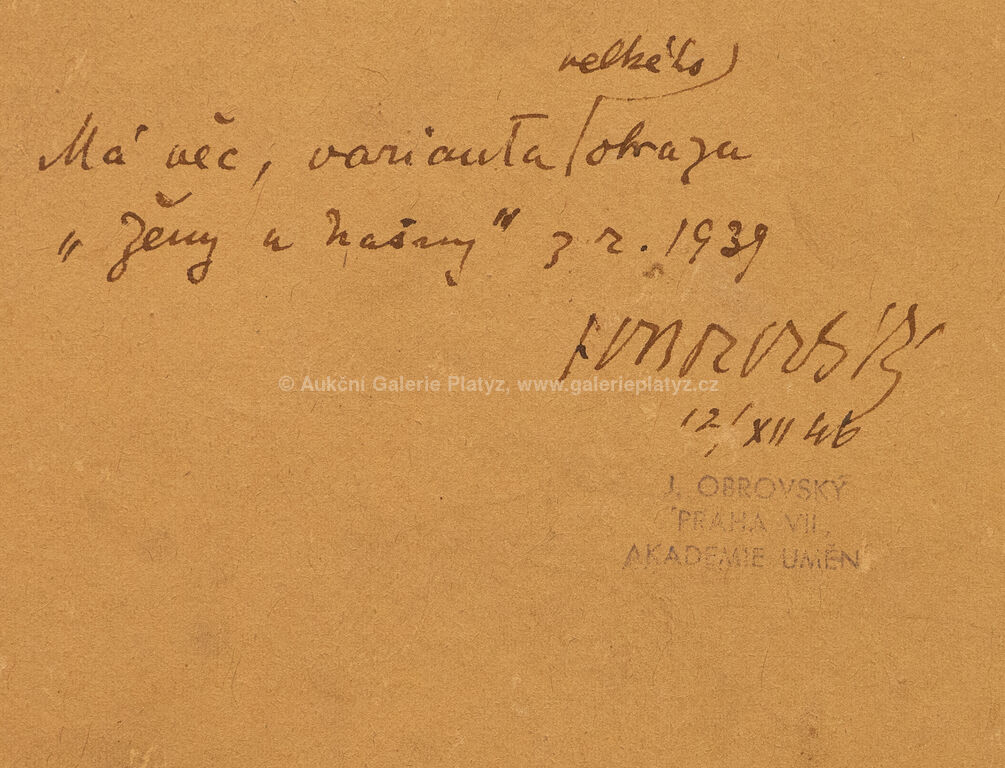 velkého
Má věc, varianta obrazu
„ženy u kašny" z r. 1939
JObrovský
© Aukční Galerie Platyz, www.galerieplatyz.cz
12/XII 46
J. OBROVSKÝ
PRAHA VII.,
AKADEMIE UMĚN